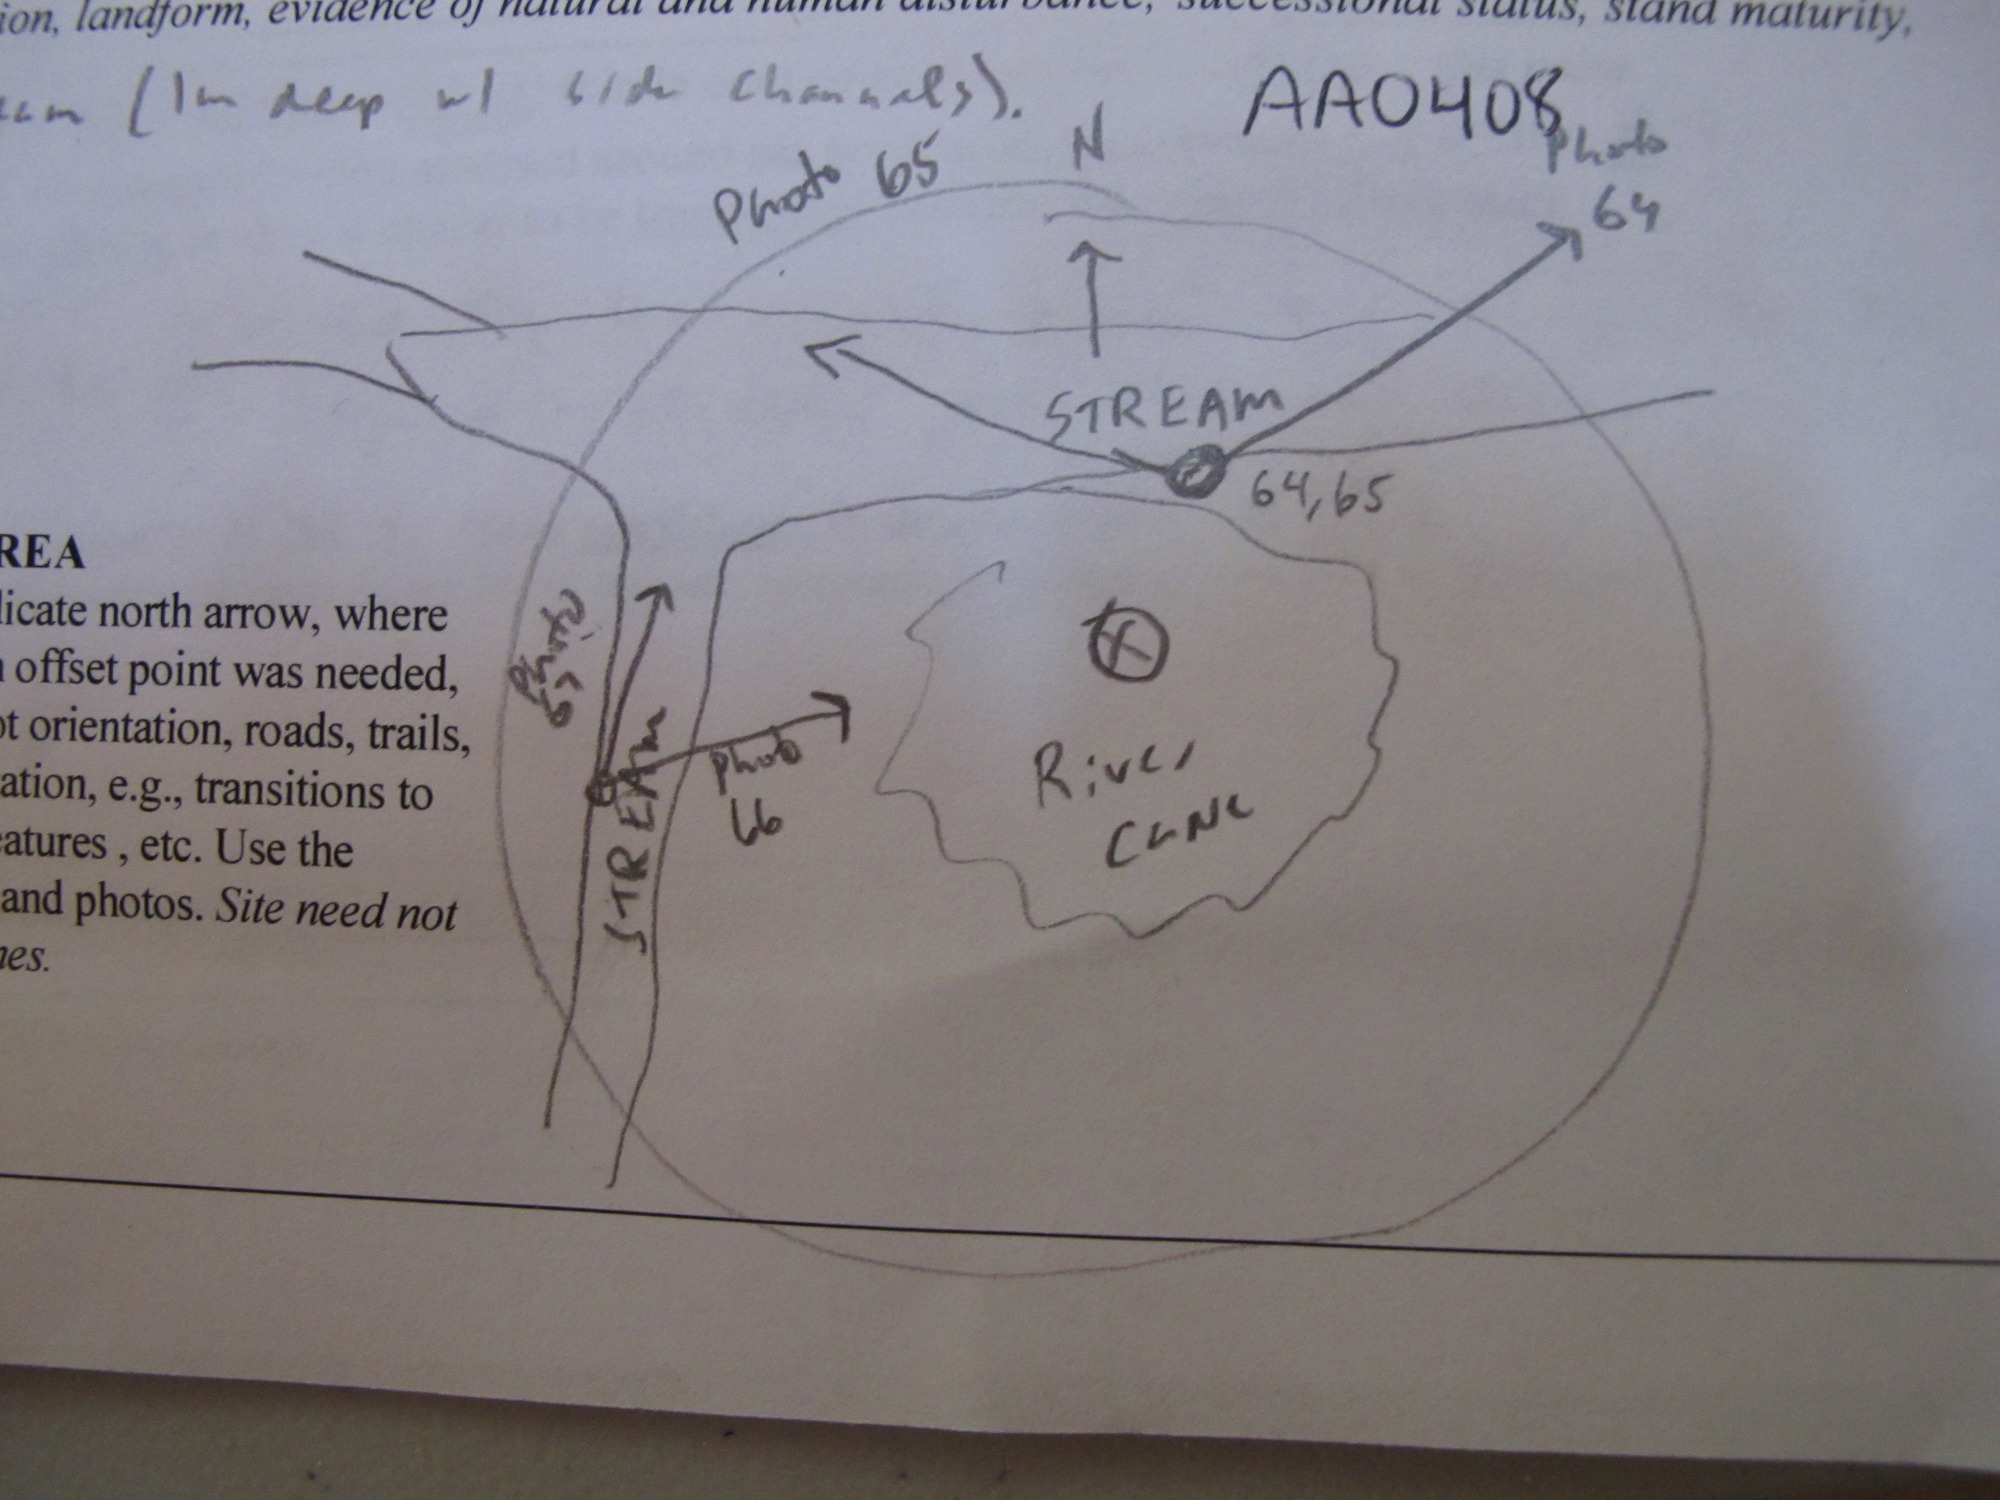 ion, landform, evidence of natural and human disturbance, successional status, stand maturity,
(1m deep w/ side channels).
AA0408
Photo 65
N
Photo
64
STREAM
64,65
REA
licate north arrow, where
offset point was needed,
ot orientation, roads, trails,
ation, e.g., transitions to
eatures , etc. Use the
and photos. Site need not
nes.
Photo
67
STREAM
Photo
66
X
River
Cane